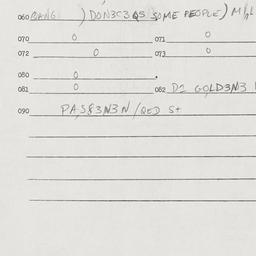 060 BANG ) DON3C3QS SOME PEOPLE) M/
070 0 071 0
072 0 073 0
080 0
081 0 082 D1 GOLD3N3
090 PAS83N3N/QED St